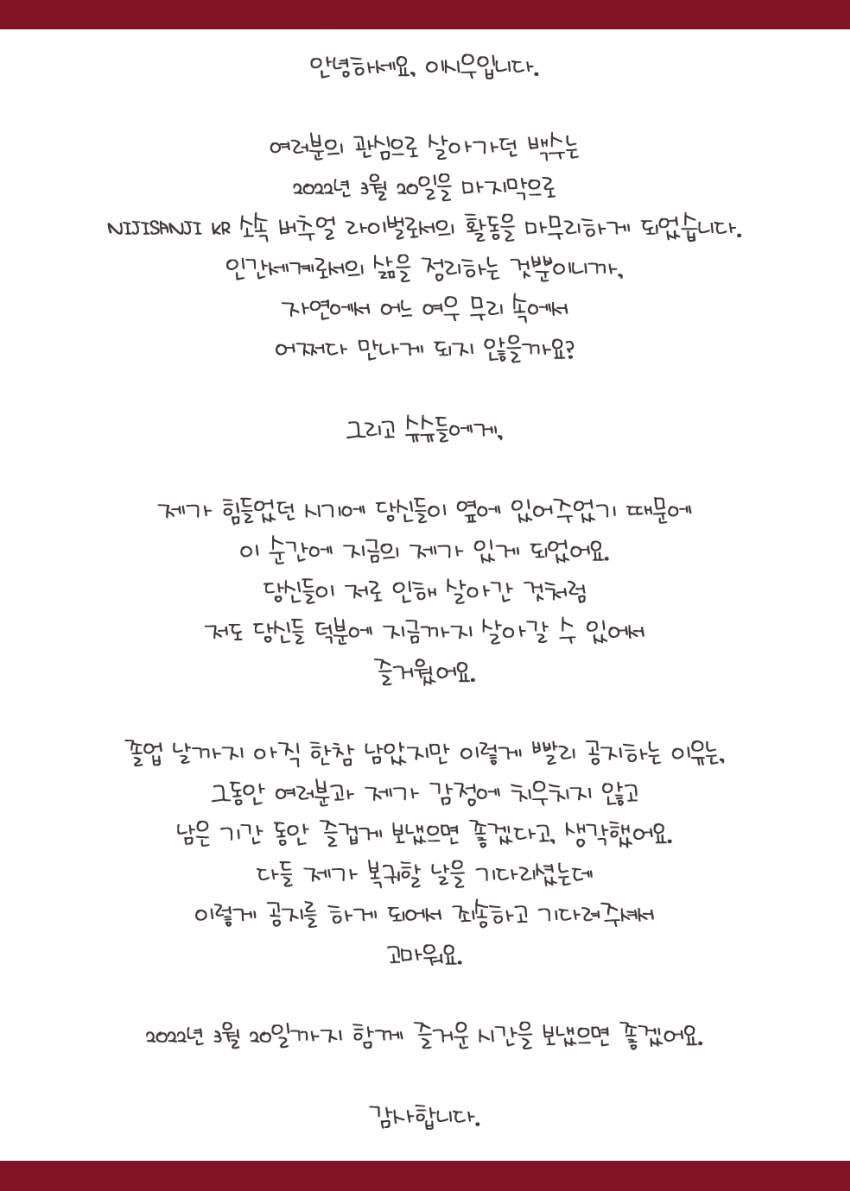 안녕하세요, 이시우입니다.
여러분의 관심으로 살아가던 백수는
2022년 3월 20일을 마지막으로
NIJISANJI KR 소속 버추얼 라이벌로서의 활동을 마무리하게 되었습니다.
인간세계로서의 삶을 정리하는 것뿐이니까,
자연에서 어느 여우 무리 속에서
어쩌다 만나게 되지 않을까요?
그리고 슈슈들에게,
제가 힘들었던 시기에 당신들이 옆에 있어주었기 때문에
이 순간에 지금의 제가 있게 되었어요.
당신들이 저로 인해 살아간 것처럼
저도 당신들 덕분에 지금까지 살아갈 수 있어서
즐거웠어요.
졸업 날까지 아직 한참 남았지만 이렇게 빨리 공지하는 이유는,
그동안 여러분과 제가 감정에 치우치지 않고
남은 기간 동안 즐겁게 보냈으면 좋겠다고, 생각했어요.
다들 제가 복귀할 날을 기다리셨는데
이렇게 공지를 하게 되어서 죄송하고 기다려주셔서
고마워요.
2022년 3월 20일까지 함께 즐거운 시간을 보냈으면 좋겠어요.
감사합니다.